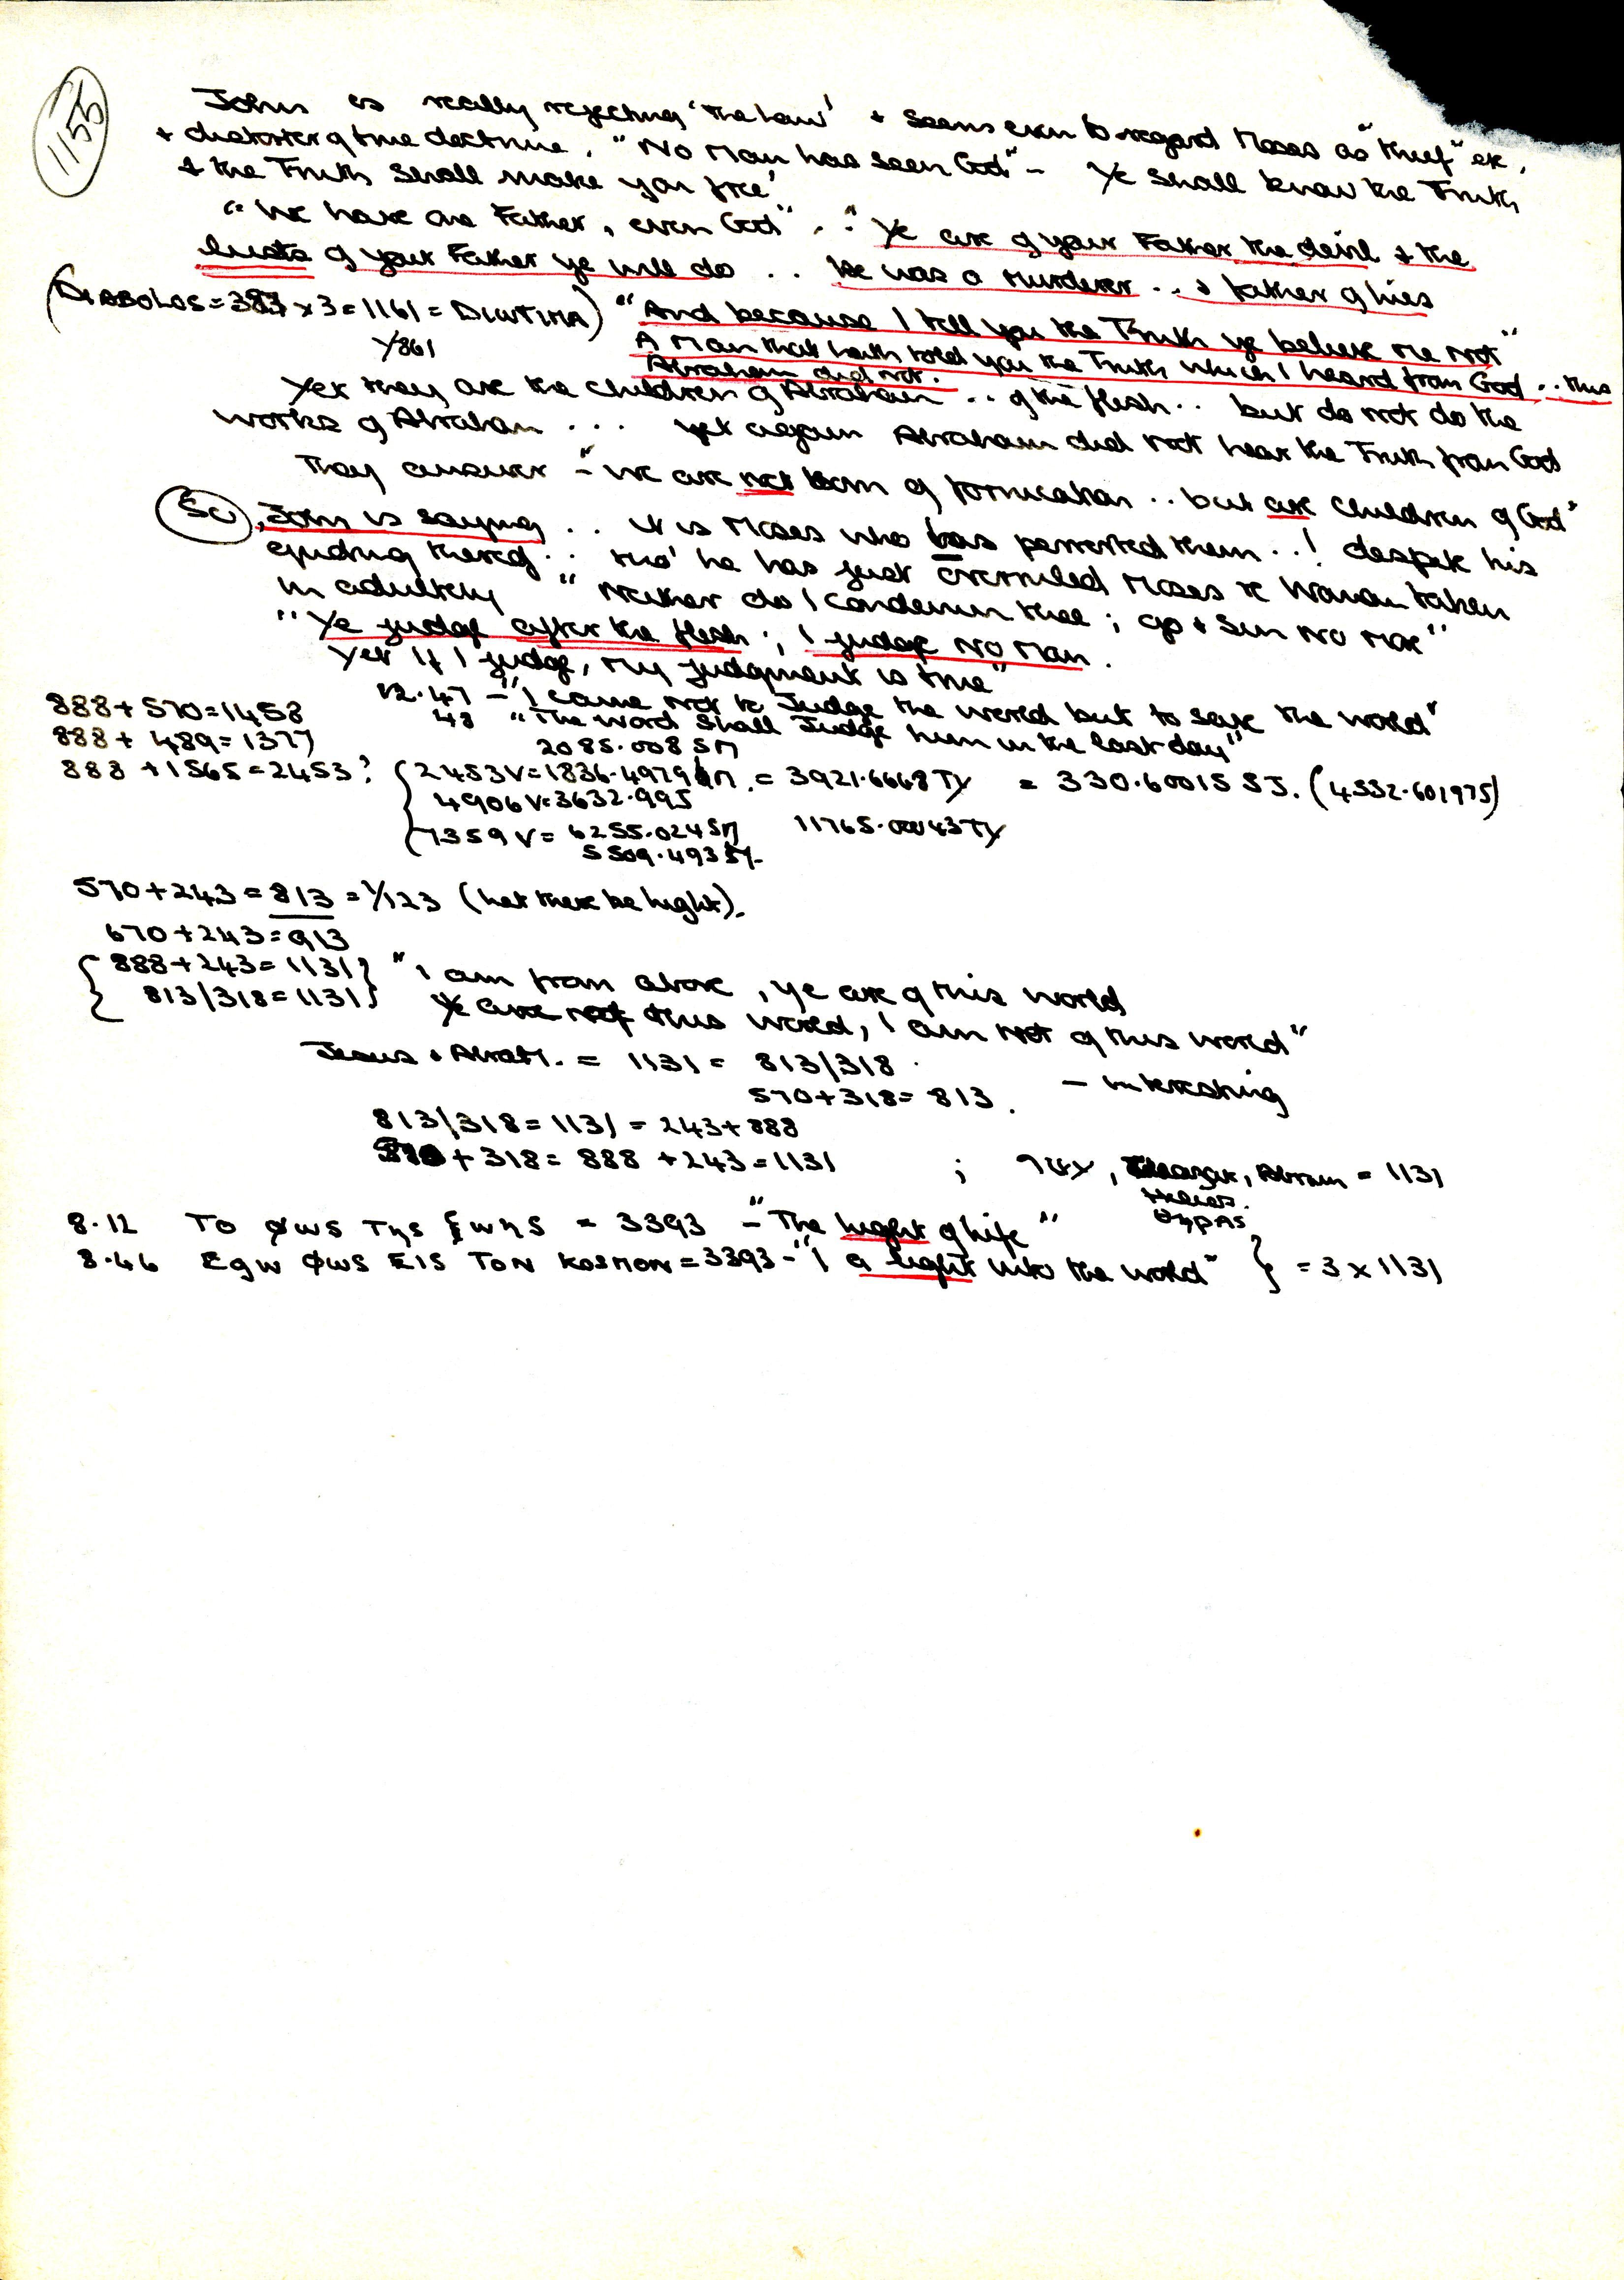 1155
John is really rejecting 'the Law' + seems even to regard Moses as "thief" etc,
+ distorter of true doctrine. "No Man has seen God" - Ye shall know the Truth
+ the Truth shall make you free'
"We have one Father, even God" .. "Ye are of your Father the devil + the
lusts of your Father ye will do .. he was a murderer ... + father of lies
(DIABOLOS = 387 x 3 = 1161 = DIWTIMA) "And because I tell you the Truth ye believe me not"
1/861 A Man that hath told you the Truth which I heard from God .. this
Abraham did not.
Yet they are the children of Abraham .. of the flesh .. but do not do the
works of Abraham ... yet again Abraham did not hear the Truth from God
They answer - "we are not born of fornication .. but are children of God"
So, John is saying .. it is Moses who has perverted them ..! despite his
quoting thereof .. tho' he has just overruled Moses re Woman taken
in adultery "Neither do I condemn thee; go + sin no more"
"Ye judge after the flesh; I judge no man.
Yet if I judge, my judgment is true"
12.47 - "I came not to Judge the world but to save the world"
48 "The Word shall Judge him in the last day"
888 + 570 = 1458
888 + 489 = 1377
2085.008 SM
888 + 1565 = 2453? { 2453V = 1836.4979 = 3921.6668 TY = 330.60015 SJ. (4532.601975)
4906V = 3632.995
7359V = 6255.024 SM 11765.00043 TY
5509.493
570 + 243 = 813 = 1/123 (Let there be light).
670 + 243 = 913
{ 888 + 243 = 1131 } "I am from above, ye are of this world
813/318 = 1131 Ye are of this world, I am not of this world"
Jesus + Abram. = 1131 = 813/318.
570 + 318 = 813. - interesting
813/318 = 1131 = 243 + 888
+ 318 = 888 + 243 = 1131 ; , Abram = 1131
Helios.
θypAS
8.12 To ØwS TηS ζwηS = 3393 - "The Light of Life"
8.46 Egw ØwS EIS TON KOSMON = 3393 - "I a light into the world" } = 3 x 1131